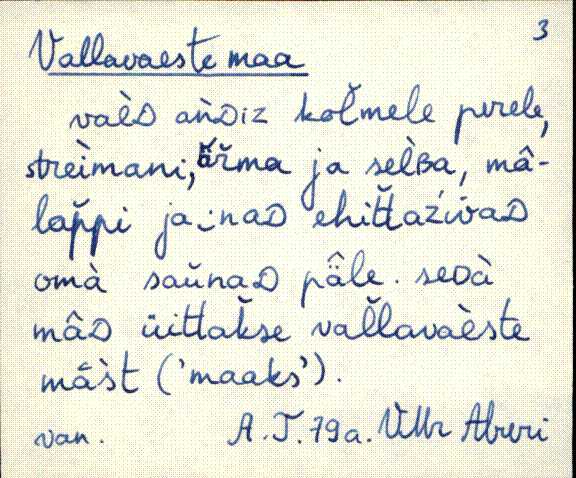 3
Vallavaeste maa
vaèD aǹDiz kol̆mele perele,
streìmani, är̆ma ja sel̀Ba, mâ-
lap̆pi ja i nad ehit̆taźivaD
omà saŭnaD pä̂le. seDà
mâD üit̆tak̆se val̆lavaèste
mầst ('maaks').
van. A.T. 79a.